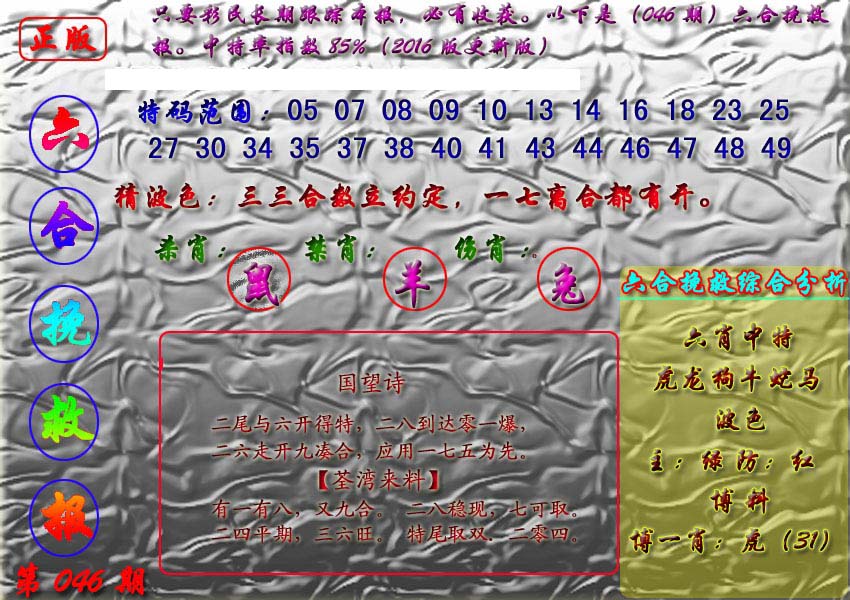 只要彩民长期跟踪本报，必有收获。以下是（046期）六合挽救
报。中特率指数85%（2016版更新版）
正版
六合挽救报
第046期
特码范围：05 07 08 09 10 13 14 16 18 23 25
27 30 34 35 37 38 40 41 43 44 46 47 48 49
猜波色：三三合数立约定，一七离合都有开。
杀肖：鼠 禁肖：羊 伤肖：兔
国望诗
二尾与六开得特，二八到达零一爆，
二六走开九凑合，应用一七五为先。
【荃湾来料】
有一有八，又九合。 二八稳现，七可取。
二四平期，三六旺。 特尾取双．二零四。
六合挽救综合分析
六肖中特
虎龙狗牛蛇马
波色
主：绿防：红
博料
博一肖：虎（31）